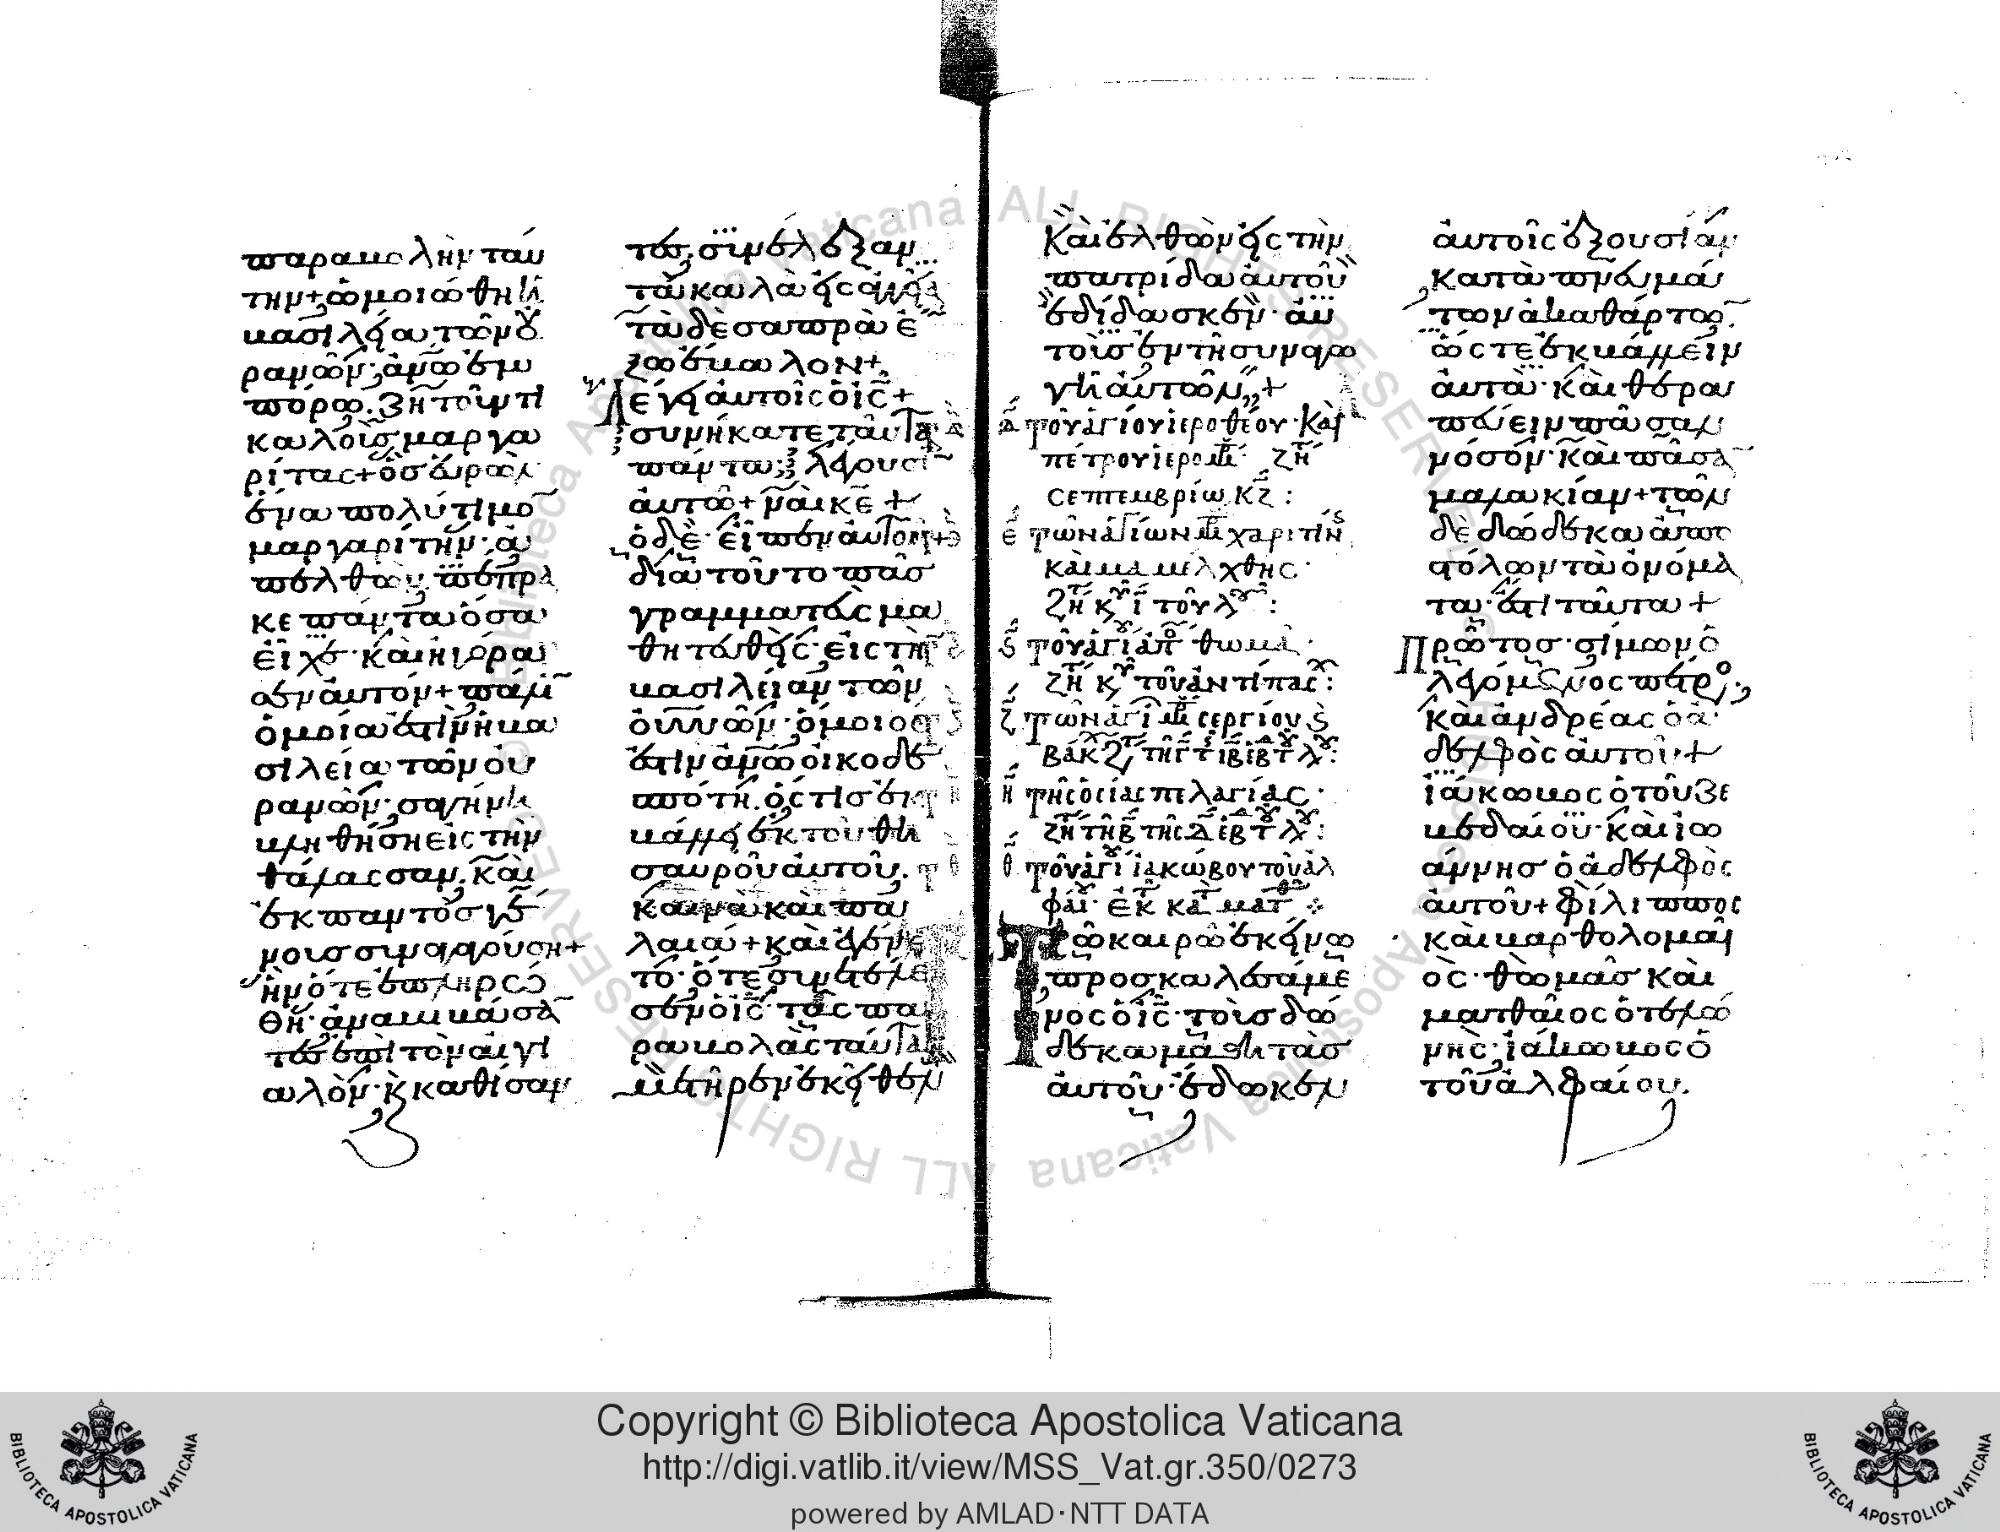 παραβολὴν ταύ
την + ὁμοιώθη ἡ
βασιλεία τῶν οὐ
ρανῶν· ἀν͞ω ἐμ
πόρω. ζητοῦντι
καλοὺς μαργα
ρίτας + ὃς εὑρὼν
ἕνα πολύτιμο͞
μαργαρίτην· ἀ
πελθὼν πέπρα
κε πάντα ὅσα
εἶχε· καὶ ἠγόρα
σεν αὐτόν + πάλι͞
ὁμοία ἐστὶν ἡ βα
σιλεία τῶν οὐ
ρανῶν· σαγήνη
βληθήση εἰς τὴν
θάλασσαν. καὶ
ἐκ παντὸς γέ
νους συναγαγούση +
ἣν ὅτε ἐπληρώ
θη· ἀναβιβάσα͞
τες ἐπὶ τὸν αἰγι
αλόν· κ̀ καθίσαν
τες. συνέλεξαν
τὰ καλὰ εἰς ἀγγεῖα
τὰ δὲ σαπρὰ ἔ
ξω ἔβαλον +
Λέγει αὐτοῖς ὁ ι͞ς +
συνήκατε ταῦτα
πάντα; λέγουσι͞
αὐτῶ + ναὶ κ͞ε +
ὁ δὲ εἶπεν αὐτοῖς +
διὰ τοῦτο πᾶσ
γραμματεὺς μα
θητευθεὶς εἰς τὴν
βασιλείαν τῶν
οὐνῶν· ὅμοιός
ἐστιν ἀν͞ω οἰκοδε
σπότη. ὅστις ἐκ
βάλλει ἐκ τοῦ θη
σαυροῦ αὐτοῦ.
καινὰ καὶ πα
λαιά + καὶ ἐγένε
το· ὅτε συνετέλε
σεν ὁ ι͞ς τὰς πα
ραβολὰς ταύτας
μετῆρεν ἐκεῖθεν
Καὶ ἐλθὼν εἰς τὴν
πατρίδα αὐτοῦ
ἐδίδασκεν· αὐ
τοὺς ἐν τῆ συναγω
γῆ αὐτῶν +
α τοῦ ἁγίου ἱεροθέου· Καὶ
πέτρου ἱερομρ ζη
σεπτεμβρίω κζ :
ε τῶν ἁγίων μρ χαριτίνης
καὶ μαμέλχθης·
ζη κυ ι τοῦ λου :
ϛ τοῦ ἁγί ἀπ θωμᾶ·
ζη κυ τοῦ ἀντίπας :
ζ τῶν ἁγί μρ σεργίου κ̀
βάκχ τη γ τ ιβ εβδ λου :
η τῆς ὁσίας πελαγίας·
ζη τη β της δ εβδ λου :
θ τοῦ ἁγί ἰακώβου τοῦ ἀλ
φαί· ἐκ κατ ματθ
Τῶ καιρῶ ἐκείνω
προσκαλεσάμε
νος ὁ ι͞ς· τοὺς δώ
δεκα μαθητὰς
αὐτοῦ· ἔδωκεν
αὐτοῖς ἐξουσίαν
κατὰ πνευμά
των ἀκαθάρτω͞.
ὥστε ἐκβάλλειν
αὐτά· καὶ θερα
πεύειν πᾶσαν
νόσον· καὶ πᾶσα͞
μαλακίαν + τῶν
δὲ δώδεκα ἀπο
στόλων τὰ ὀνόμα
τα· ἐστὶ ταῦτα +
Πρῶτος· σίμων ὁ
λεγόμενος πέτρος·
καὶ ἀνδρέας ὁ ἀ
δελφὸς αὐτοῦ +
ἰάκωβος ὁ τοῦ ζε
βεδαίου· καὶ ἰω
άννης ὁ ἀδελφὸς
αὐτοῦ + φίλιππος
καὶ βαρθολομαῖ
ος· θωμᾶς καὶ
ματθαῖος ὁ τελώ
νης· ἰάκωβος ὁ
τοῦ ἀλφαίου.
Copyright © Biblioteca Apostolica Vaticana
http://digi.vatlib.it/view/MSS_Vat.gr.350/0273
powered by AMLAD·NTT DATA
BIBLIOTECA APOSTOLICA VATICANA
BIBLIOTECA APOSTOLICA VATICANA